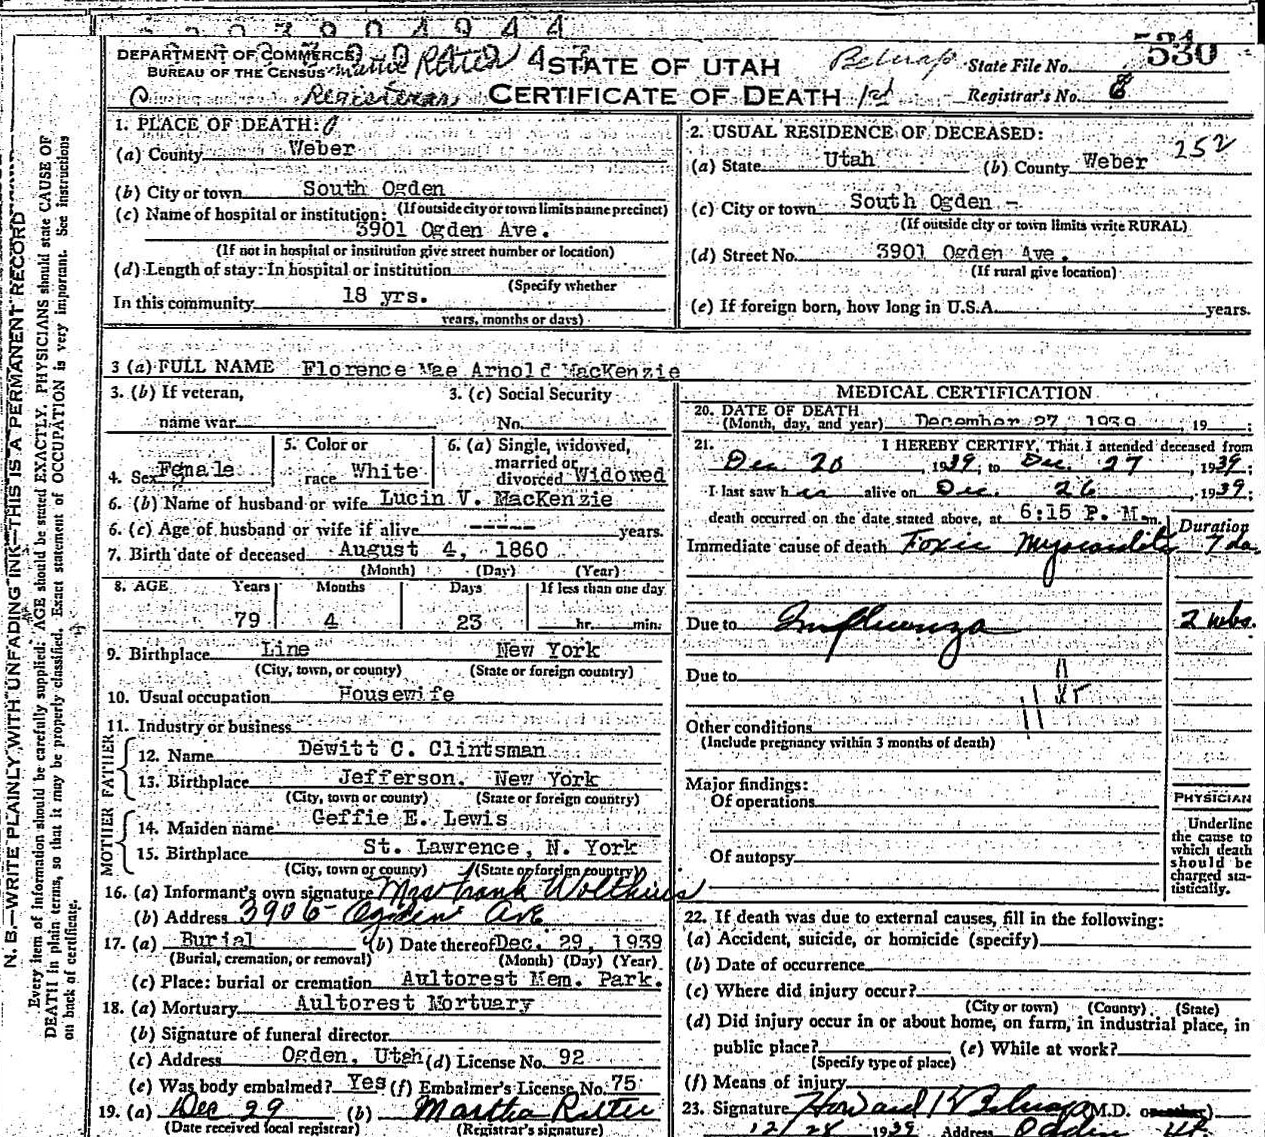 DEPARTMENT OF COMMERCE
BUREAU OF THE CENSUS
STATE OF UTAH
CERTIFICATE OF DEATH
State File No. 530
Registrar's No. 8
1. PLACE OF DEATH:
(a) County Weber
(b) City or town South Ogden
(If outside city or town limits name precinct)
(c) Name of hospital or institution:
3901 Ogden Ave.
(If not in hospital or institution give street number or location)
(d) Length of stay: In hospital or institution
(Specify whether
In this community 18 yrs.
years, months or days)
2. USUAL RESIDENCE OF DECEASED:
252
(a) State Utah (b) County Weber
(c) City or town South Ogden -
(If outside city or town limits write RURAL)
(d) Street No. 3901 Ogden Ave.
(If rural give location)
(e) If foreign born, how long in U.S.A. years.
3 (a) FULL NAME Florence Mae Arnold MacKenzie
3. (b) If veteran,
name war
3. (c) Social Security
No.
4. Sex Female
5. Color or
race White
6. (a) Single, widowed,
married or
divorced Widowed
6. (b) Name of husband or wife Lucin V. MacKenzie
6. (c) Age of husband or wife if alive ----- years.
7. Birth date of deceased August 4, 1860
(Month) (Day) (Year)
8. AGE Years Months Days If less than one day
79 4 23 hr. min.
9. Birthplace Line New York
(City, town, or county) (State or foreign country)
10. Usual occupation Housewife
11. Industry or business
FATHER
12. Name Dewitt C. Clintsman
13. Birthplace Jefferson, New York
(City, town or county) (State or foreign country)
MOTHER
14. Maiden name Geffie E. Lewis
15. Birthplace St. Lawrence, N. York
(City, town or county) (State or foreign country)
16. (a) Informant's own signature Mrs Frank Wolthius
(b) Address 3906 Ogden Ave
17. (a) Burial (b) Date thereof Dec. 29, 1939
(Burial, cremation, or removal) (Month) (Day) (Year)
(c) Place: burial or cremation Aultorest Mem. Park.
18. (a) Mortuary Aultorest Mortuary
(b) Signature of funeral director
(c) Address Ogden, Utah (d) License No. 92
(e) Was body embalmed? Yes (f) Embalmer's License No. 75
19. (a) Dec 29 (b) Martha Ritter
(Date received local registrar) (Registrar's signature)
MEDICAL CERTIFICATION
20. DATE OF DEATH
(Month, day, and year) December 27, 1939, 19 ;
21. I HEREBY CERTIFY, That I attended deceased from
Dec 20, 1939, to Dec. 27, 1939,
I last saw her alive on Dec. 26, 1939;
death occurred on the date stated above, at 6:15 P. M. m.
Duration
Immediate cause of death Toxic Myocarditis 7 da.
Due to Influenza 2 wks.
Due to
Other conditions
(Include pregnancy within 3 months of death)
Major findings:
Of operations
Of autopsy
PHYSICIAN
Underline
the cause to
which death
should be
charged sta-
tistically.
22. If death was due to external causes, fill in the following:
(a) Accident, suicide, or homicide (specify)
(b) Date of occurrence
(c) Where did injury occur?
(City or town) (County) (State)
(d) Did injury occur in or about home, on farm, in industrial place, in
public place? (e) While at work?
(Specify type of place)
(f) Means of injury
23. Signature Howard K Belnap (M.D. or other)
12/28 1939 Address Ogden Ut
N. B.—WRITE PLAINLY WITH UNFADING INK—THIS IS A PERMANENT RECORD
Every item of information should be carefully supplied. AGE should be stated EXACTLY. PHYSICIANS should state CAUSE OF
DEATH in plain terms, so that it may be properly classified. Exact statement of OCCUPATION is very important. See instructions
on back of certificate.